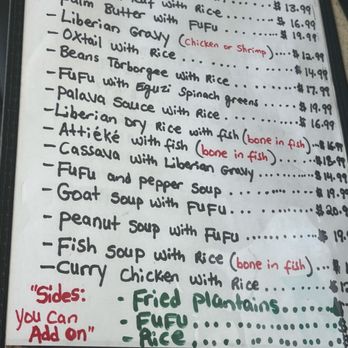 with Rice...... $16.99
Palm Butter with FuFu... $19.99
- Liberian Gravy (chicken or shrimp)... $12.99
- Oxtail with Rice........ $14.99
- Beans Torborgee with Rice... $17.99
- FuFu with Eguzi Spinach greens.. $19.99
- Palava Sauce with Rice...... $16.99
- Liberian Dry Rice with fish (bone in fish)..
- Attiéké with fish (bone in fish)...
- Cassava with Liberian Gravy.... $14.99
- FuFu and pepper soup..... $19.99
- Goat Soup with FuFu.......
- Peanut Soup with FuFu....
- Fish Soup with Rice (bone in fish)...
- Curry Chicken with Rice....
"Sides: You Can Add on"
- Fried plantains......
- FuFu.........
- Rice.........